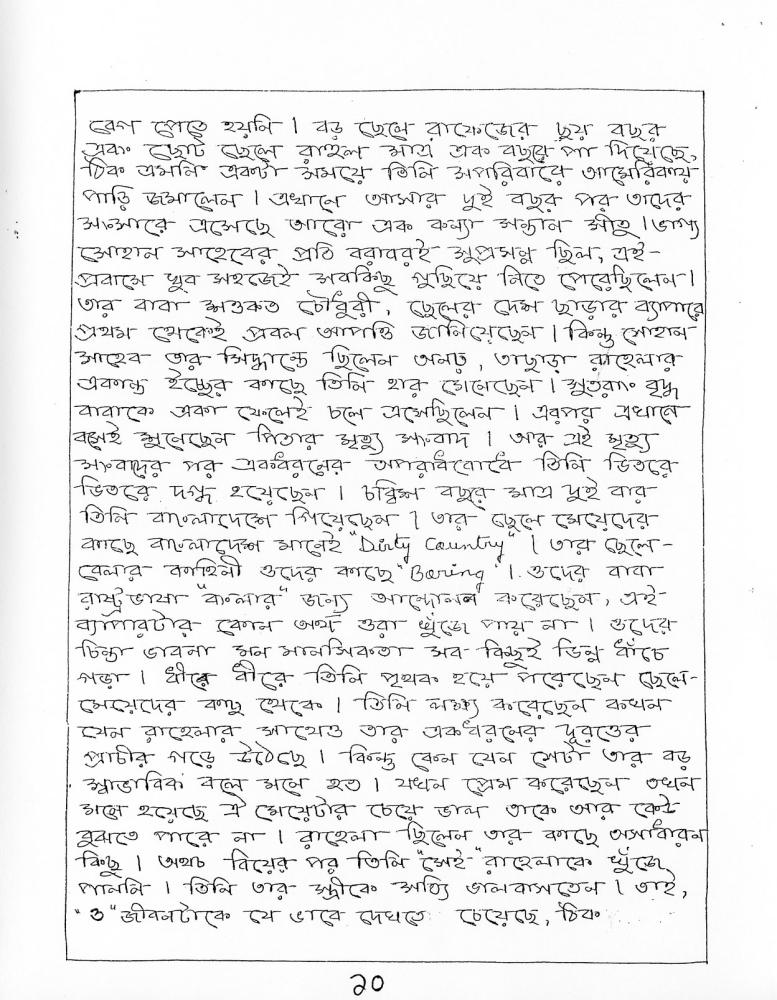 বেগ পেতে হয়নি । বড় ছেলে রাফেজের ছয় বছর
এবং ছোট ছেলে রাহুল মাত্র এক বছরে পা দিয়েছে,
ঠিক এমনি একটা সময়ে তিনি সপরিবারে আমেরিকায়
পাড়ি জমালেন । এখানে আসার দুই বছর পর তাদের
সংসারে এসেছে আরো এক কন্যা সন্তান মীতু । ভাগ্য
সোহান সাহেবের প্রতি বরাবরই সুপ্রসন্ন ছিল, এই-
প্রবাসে খুব সহজেই সবকিছু গুছিয়ে নিতে পেরেছিলেন ।
তার বাবা শওকত চৌধুরী, ছেলের দেশ ছাড়ার ব্যাপারে
প্রথম থেকেই প্রবল আপত্তি জানিয়েছেন । কিন্তু সোহান
সাহেব তার সিদ্ধান্তে ছিলেন অনঢ়, তাছাড়া রাহেলার
একান্ত ইচ্ছের কাছে তিনি হার মেনেছেন । সুতরাং বৃদ্ধ
বাবাকে একা ফেলেই চলে এসেছিলেন । এরপর এখানে
বসেই শুনেছেন পিতার মৃত্যু সংবাদ । আর এই মৃত্যু
সংবাদের পর একধরনের অপরাধবোধে তিনি ভিতরে
ভিতরে দগ্ধ হয়েছেন । চব্বিশ বছরে মাত্র দুই বার
তিনি বাংলাদেশে গিয়েছেন । তার ছেলে মেয়েদের
কাছে বাংলাদেশ মানেই "Dirty Country" । তার ছেলে-
বেলার কাহিনী ওদের কাছে "Boring" । ওদের বাবা
রাষ্ট্রভাষা "বাংলার" জন্য আন্দোলন করেছেন, এই-
ব্যাপারটার কোন অর্থ ওরা খুঁজে পায় না । ওদের
চিন্তা ভাবনা মন মানসিকতা সব কিছুই ভিন্ন ধাঁচে
গড়া । ধীরে ধীরে তিনি পৃথক হয়ে পরেছেন ছেলে-
মেয়েদের কাছ থেকে । তিনি লক্ষ্য করেছেন কখন
যেন রাহেলার সাথেও তার একধরনের দূরত্বের
প্রাচীর গড়ে উঠেছে । কিন্তু কেন যেন সেটা তার বড়
স্বাভাবিক বলে মনে হত । যখন প্রেম করেছেন তখন
মনে হয়েছে ঐ মেয়েটার চেয়ে ভাল তাকে আর কেউ
বুঝতে পারে না । রাহেলা ছিলেন তার কাছে অসাধারন
কিছু । অথচ বিয়ের পর তিনি "সেই" রাহেলাকে খুঁজে
পাননি । তিনি তার স্ত্রীকে সত্যি ভালবাসতেন । তাই,
"ও" জীবনটাকে যে ভাবে দেখতে চেয়েছে, ঠিক
20